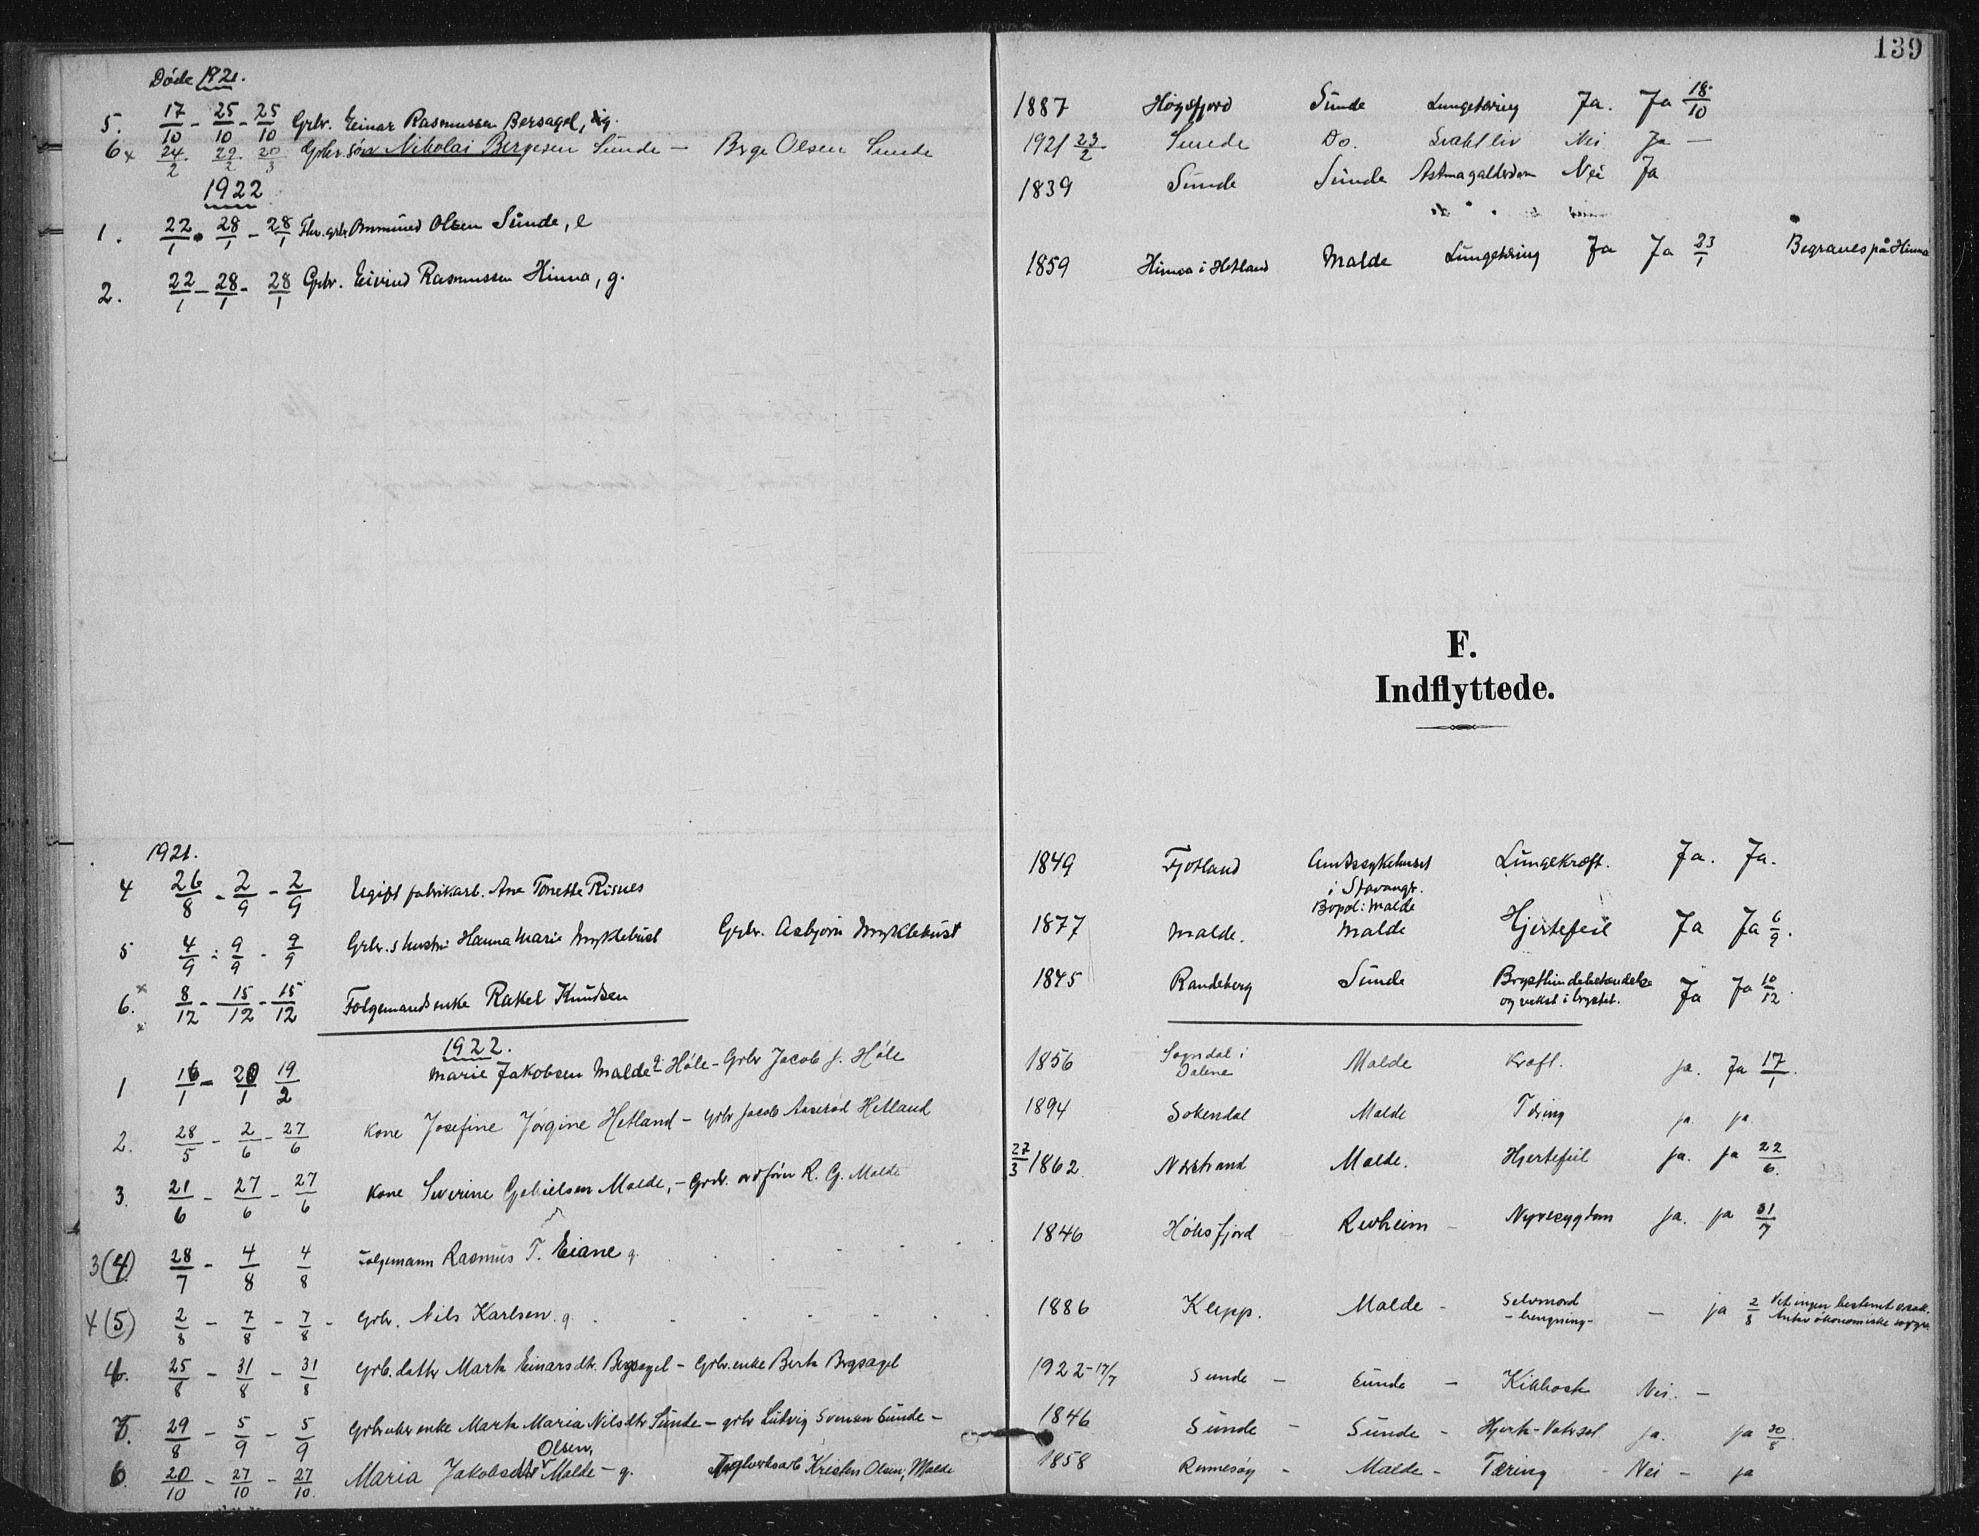 139
Døde 1921.
5. 17/10 - 25/10 - 25/10 Grbr. Einar Rasmussen Bersagel, ug. 1887 Høgsfjord Sunde Lungetæring Ja. Ja 18/10
6 x 24/2 29/2 20/3 Grbr. søn Nikolai Bergesen Sunde - Berge Olsen Sunde 1921 23/2 Sunde Do. Nei Ja -
1922
1. 22/1 28/1 - 28/1 Olsen Sunde, e 1839 Sunde Sunde Nei Ja
2. 22/1 - 28/1 - 28/1 Grbr. Eivind Rasmussen Hinna, g. 1859 Hinna i Hetland Malde Lungetæring Ja Ja 23/1 Begraves på Hinna
F.
Indflyttede.
1921.
4 26/8 - 2/9 - 2/9 Ugift fabrikarb. Ane Tonette Risnes 1849 Fjotland Amtssykehuset i Stavanger. Bopel: Malde Lungekræft. Ja. Ja.
5 4/9 - 9/9 - 9/9 Grbr.s hustru Hanna Marie Myklebust Grbr. Asbjørn Myklebust 1877 Malde. Malde Hjertefeil Ja Ja 6/9.
6. x 8/12 - 15/12 - 15/12 Følgemandsenke Rakel Knudsen 1845 Randeberg Sunde Brysthindebetændelse og vekst i brystet. Ja Ja 10/12.
1922.
1 16/1 - 20/1 19/2 Marie Jakobsen Malde Høle - Grbr Jacob J. Høle 1856 Sogndal i Dalene Malde Kræft. ja. Ja 17/1.
2. 28/5 - 2/6 - 27/6 Kone Josefine Jørgine Hetland - Grbr Jacob Aaserød Hetland 1894 Sokendal Malde Tæring ja. ja.
3. 21/6 - 27/6 - 27/6 Kone Severine Gabrielsen Malde, - Grbr. ordfører R. G. Malde 27/3 1862 Nerstrand Malde. Hjertefeil ja. ja 22/6.
3 (4) 28/7 - 4/8 4/8 Følgemann Rasmus T. Eiane g. 1846 Høgsfjord Revheim - Nyresygdom ja. ja 31/7
4 (5) 2/8 - 7/8 - 7/8 - Grbr. Nils Karlsen. g. 1886 Klepp. Malde - Selvmord - hengning - - ja 2/8 Vet ingen bestemt årsak. Antar økonomiske sorger.
25/8 - 31/8 - 31/8 Grb. datter Marta Einarsdtr. Bersagel - Grbr. enke Berta Bersagel 1922 - 17/7 Sunde - Sunde - Kikhoste Nei. -
29/8 - 5/9 - 5/9 enke Marta Maria Nilsdtr Sunde - grbr Ludvig Svensen Sunde - 1846 Sunde - Sunde - Hjerte - Vatersot ja. ja 30/8.
6. 20/10 - 27/10 - 27/10. Maria Jakobsdtr Olsen, Malde - g. Kristen Olsen, Malde 1858 Rennesøy - Malde - Tæring - Nei - ja